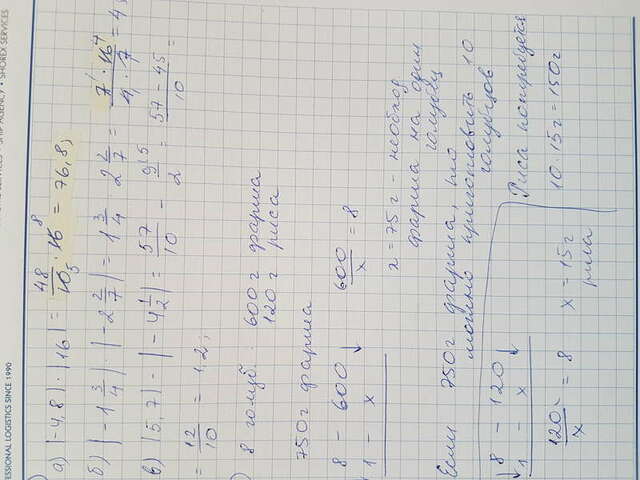 FESSIONAL LOGISTICS SINCE 1990
SHIP AGENCY • SHOREX SERVICES
а) |-4,8| · |16| = 48/10 5 · 16 8 = 76,8;
б) |-1 3/4| · |-2 2/7| = 1 3/4 2 2/7 = 7 1 · 16 4 / 4 · 7 = 4;
в) |5,7| - |-4 1/2| = 57/10 - 9/2 5 = 57 - 45 / 10 =
= 12/10 = 1,2;
8 голуб. 600г фарша
120г риса
750г фарша
8 - 600
1 - x
600/x = 8
x = 75г - необход.
фарша на один
голубец
Если 750г фарша, то
можно приготовить 10
голубцов
8 - 120
1 - x
120/x = 8
x = 15г
риса
Риса потребуется
10 · 15г = 150г